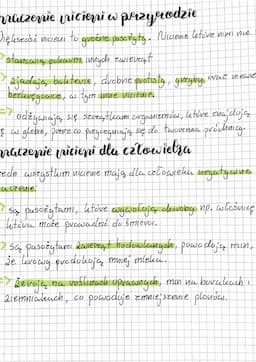 znaczenie nicieni w przyrodzie
Większość nicieni to groźne pasożyty. Nicienie które nimi nie
stanowią pokarm innych zwierząt
zjadają bakterie, drobne protisty, grzyby oraz
bezkręgowce, w tym inne nicienie.
=> odżywiają się szczątkami organizmów, które znajdują
się w glebie, przez co przyczyniają się do tworzenia próchnicy.
znaczenie nicieni dla człowieka
przede wszystkim nicienie mają dla człowieka negatywne
znaczenie:
są pasożytami, które wywołują choroby np. włośnicę
która może prowadzić do śmierci.
są pasożytami zwierząt hodowlanych, powodują m.in,
że krowy produkują mniej mleka.
=> żerują na roślinach uprawnych, min na burakach i
ziemniakach, co powoduje zmniejszenie plonów.